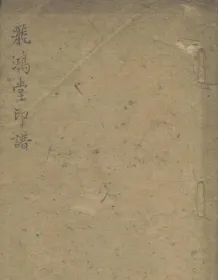 飛鴻堂印譜